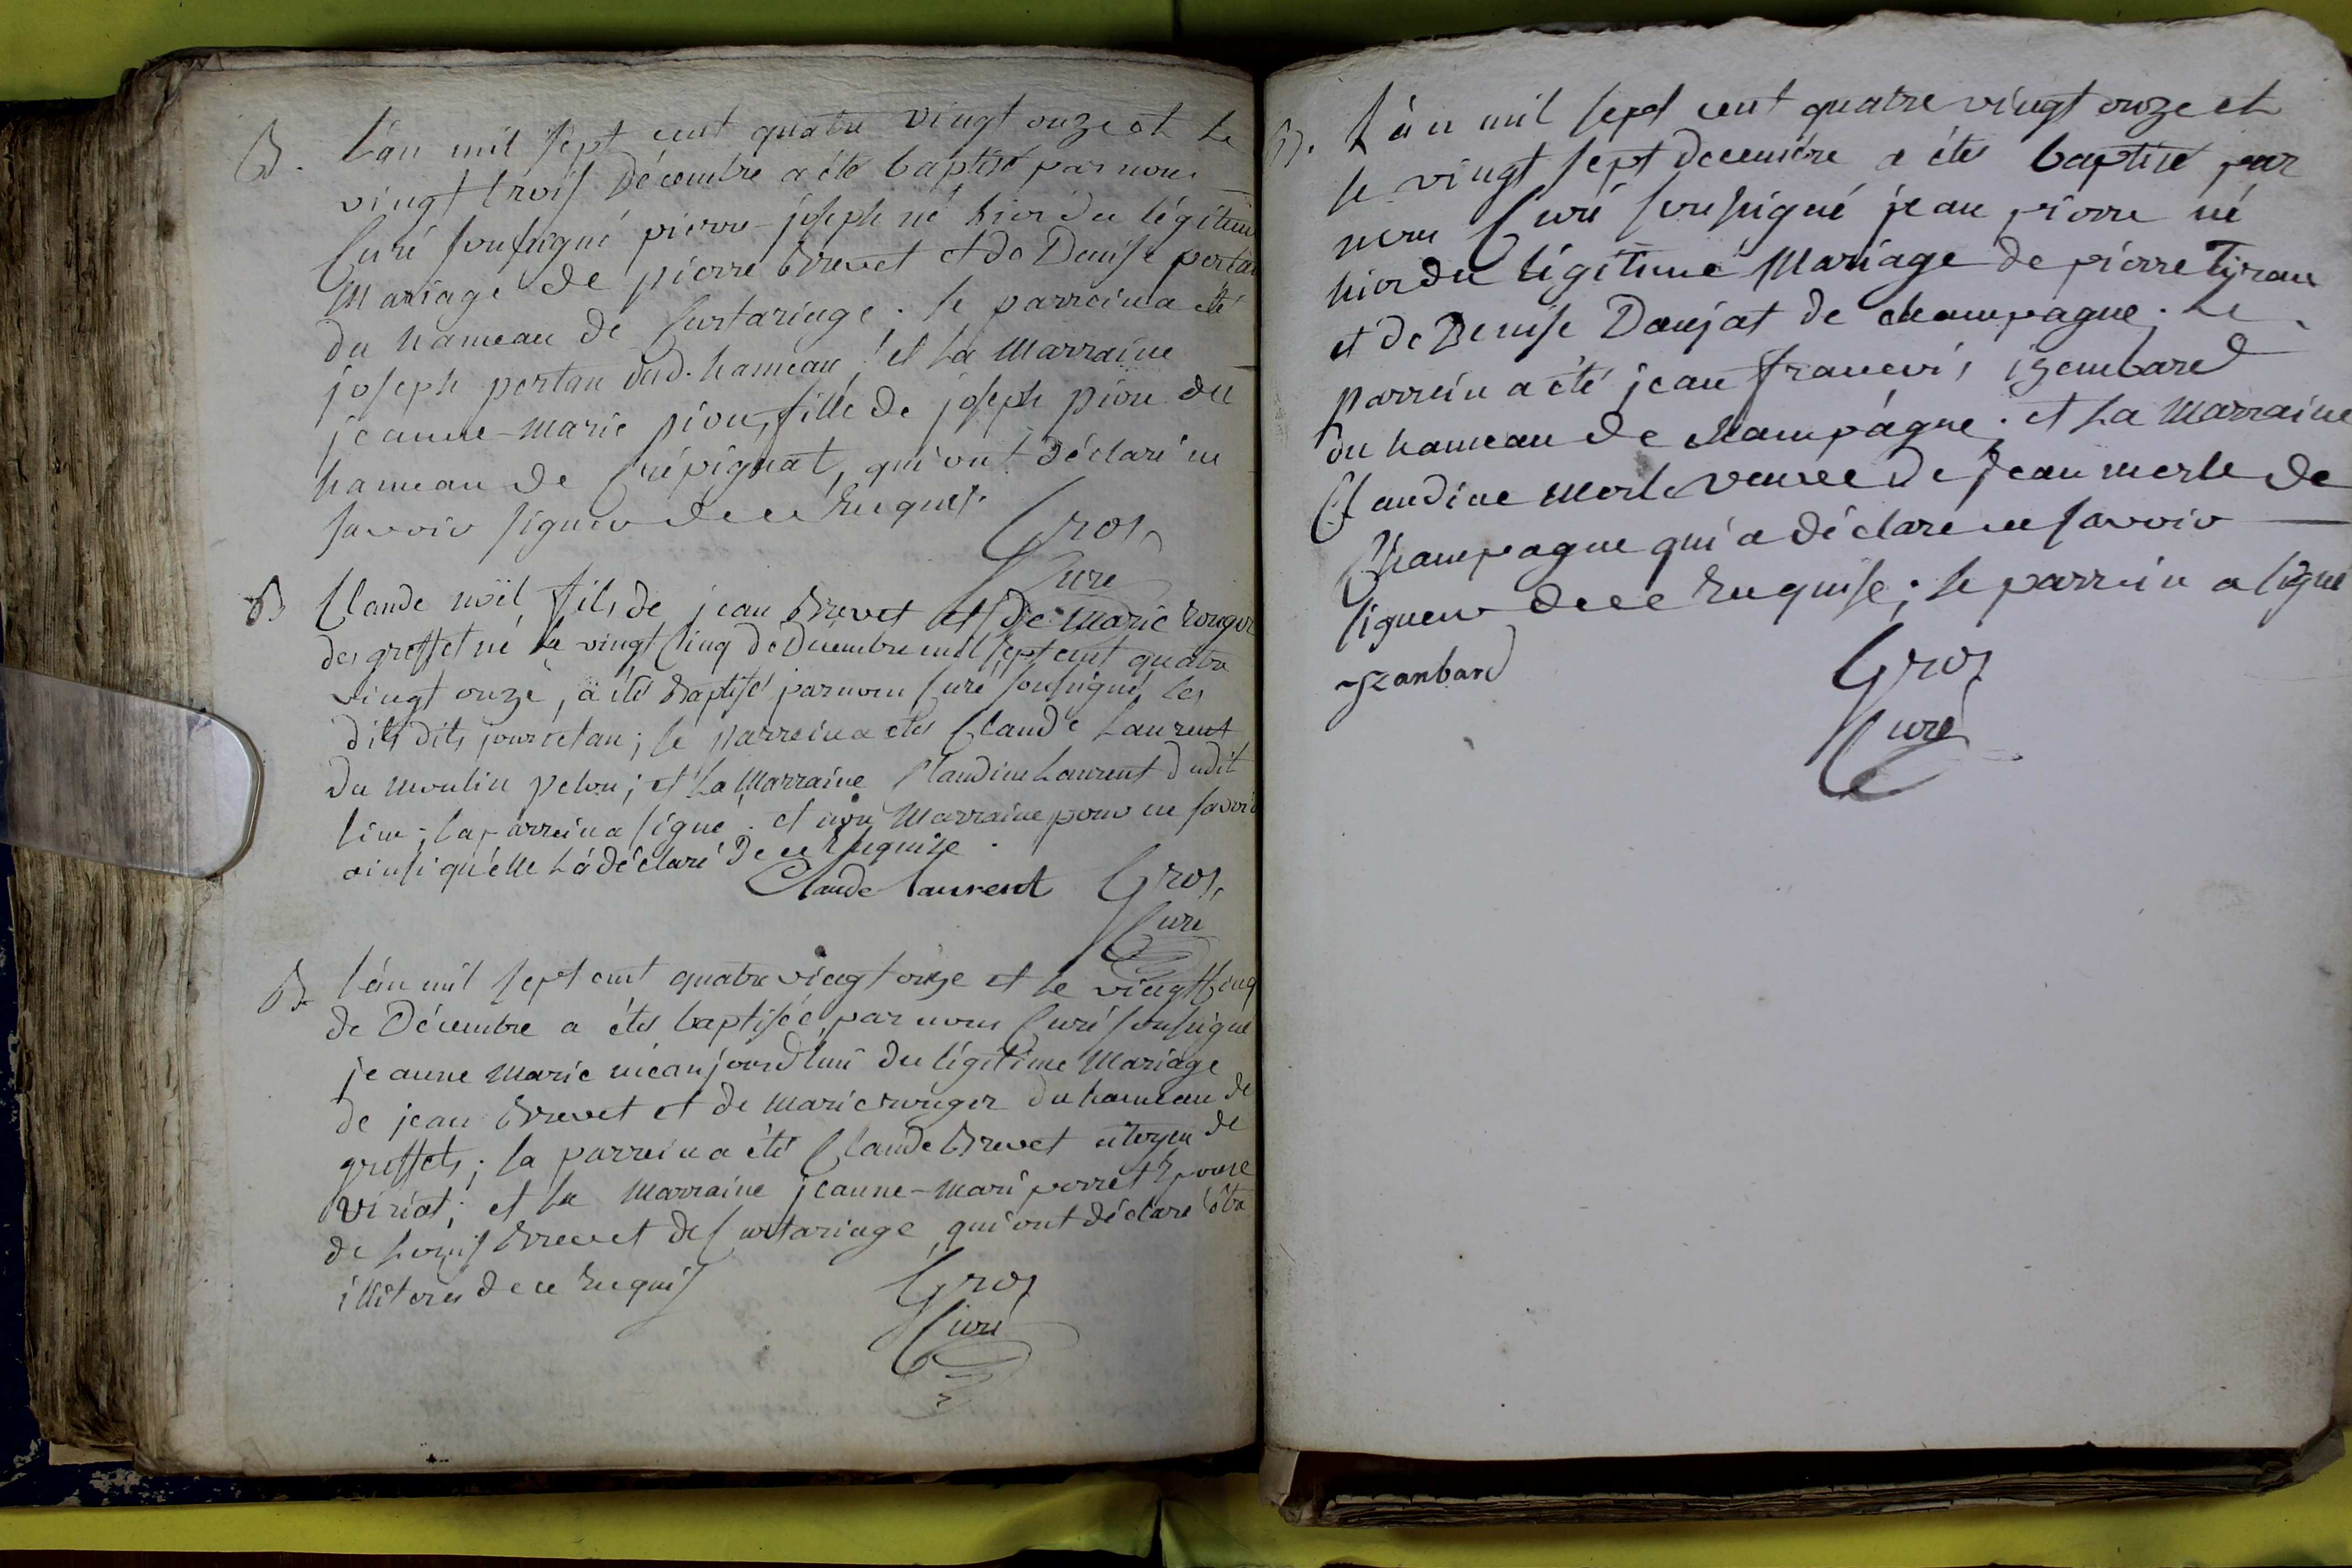 B. L'an mil sept cent quatre vingt onze et le
vingt trois Décembre a été baptisé par nous
Curé soussigné pierre-joseph né hier du légitime
Mariage de pierre Brevet et de Denise pertan
du hameau de Curtaringe. le parrein a été
joseph pertan dud. hameau; et la Marraine
jeanne-marie pion, fille de joseph pion du
hameau de Crépignat, qui ont déclaré ne
savoir signer de ce Enquis.
Gros,
Curé
B Claude noël fils de jean Brevet et de Marie rouger
des greffet né le vingt Cinq de Decembre mil sept cent quatre
vingt onze, a été Baptisé par nous Curé soussigné, les
dits dits jour et an; le parrein a étés Claude Laurent
du moulin pelou; et la Marraine Claudine Laurent dudit
lieu; la parrein a signé. et non Marraine pour ne savoir
ainsi qu'elle l'a déclaré de ce Enquise.
Claude laurent Gros,
Curé
B. L'an mil sept cent quatre vingt onze et le vingt Cinq
de Décembre a étés baptisée, par nous Curé soussigné
jeanne marie née aujourd'hui du légitime Mariage
de jean Brevet et de marie rouger du hameau de
greffets; la parrein a étés Claude Brevet citoyen de
Viriat; et la Marraine jeanne-mari perret Epouse
de Louis Brevet de Curtaringe, qui ont déclaré être
illétorés de ce Enquis
Gros
Curé
B. L'an mil sept cent quatre vingt onze et
le vingt sept decembre a étés baptisé par
nous Curé soussigné jean pierre né
hier du légitime Mariage de pierre Tyran
et de Denise Danjat de champagne. Le
parrein a été jean francois izembard
du hameau de champagne. et la Marraine
Claudine Merle veuve de jean merle de
Champagne qui a déclaré ne savoir
signer de ce Enquise; le parrein a signé
yzanbard
Gros
Curé